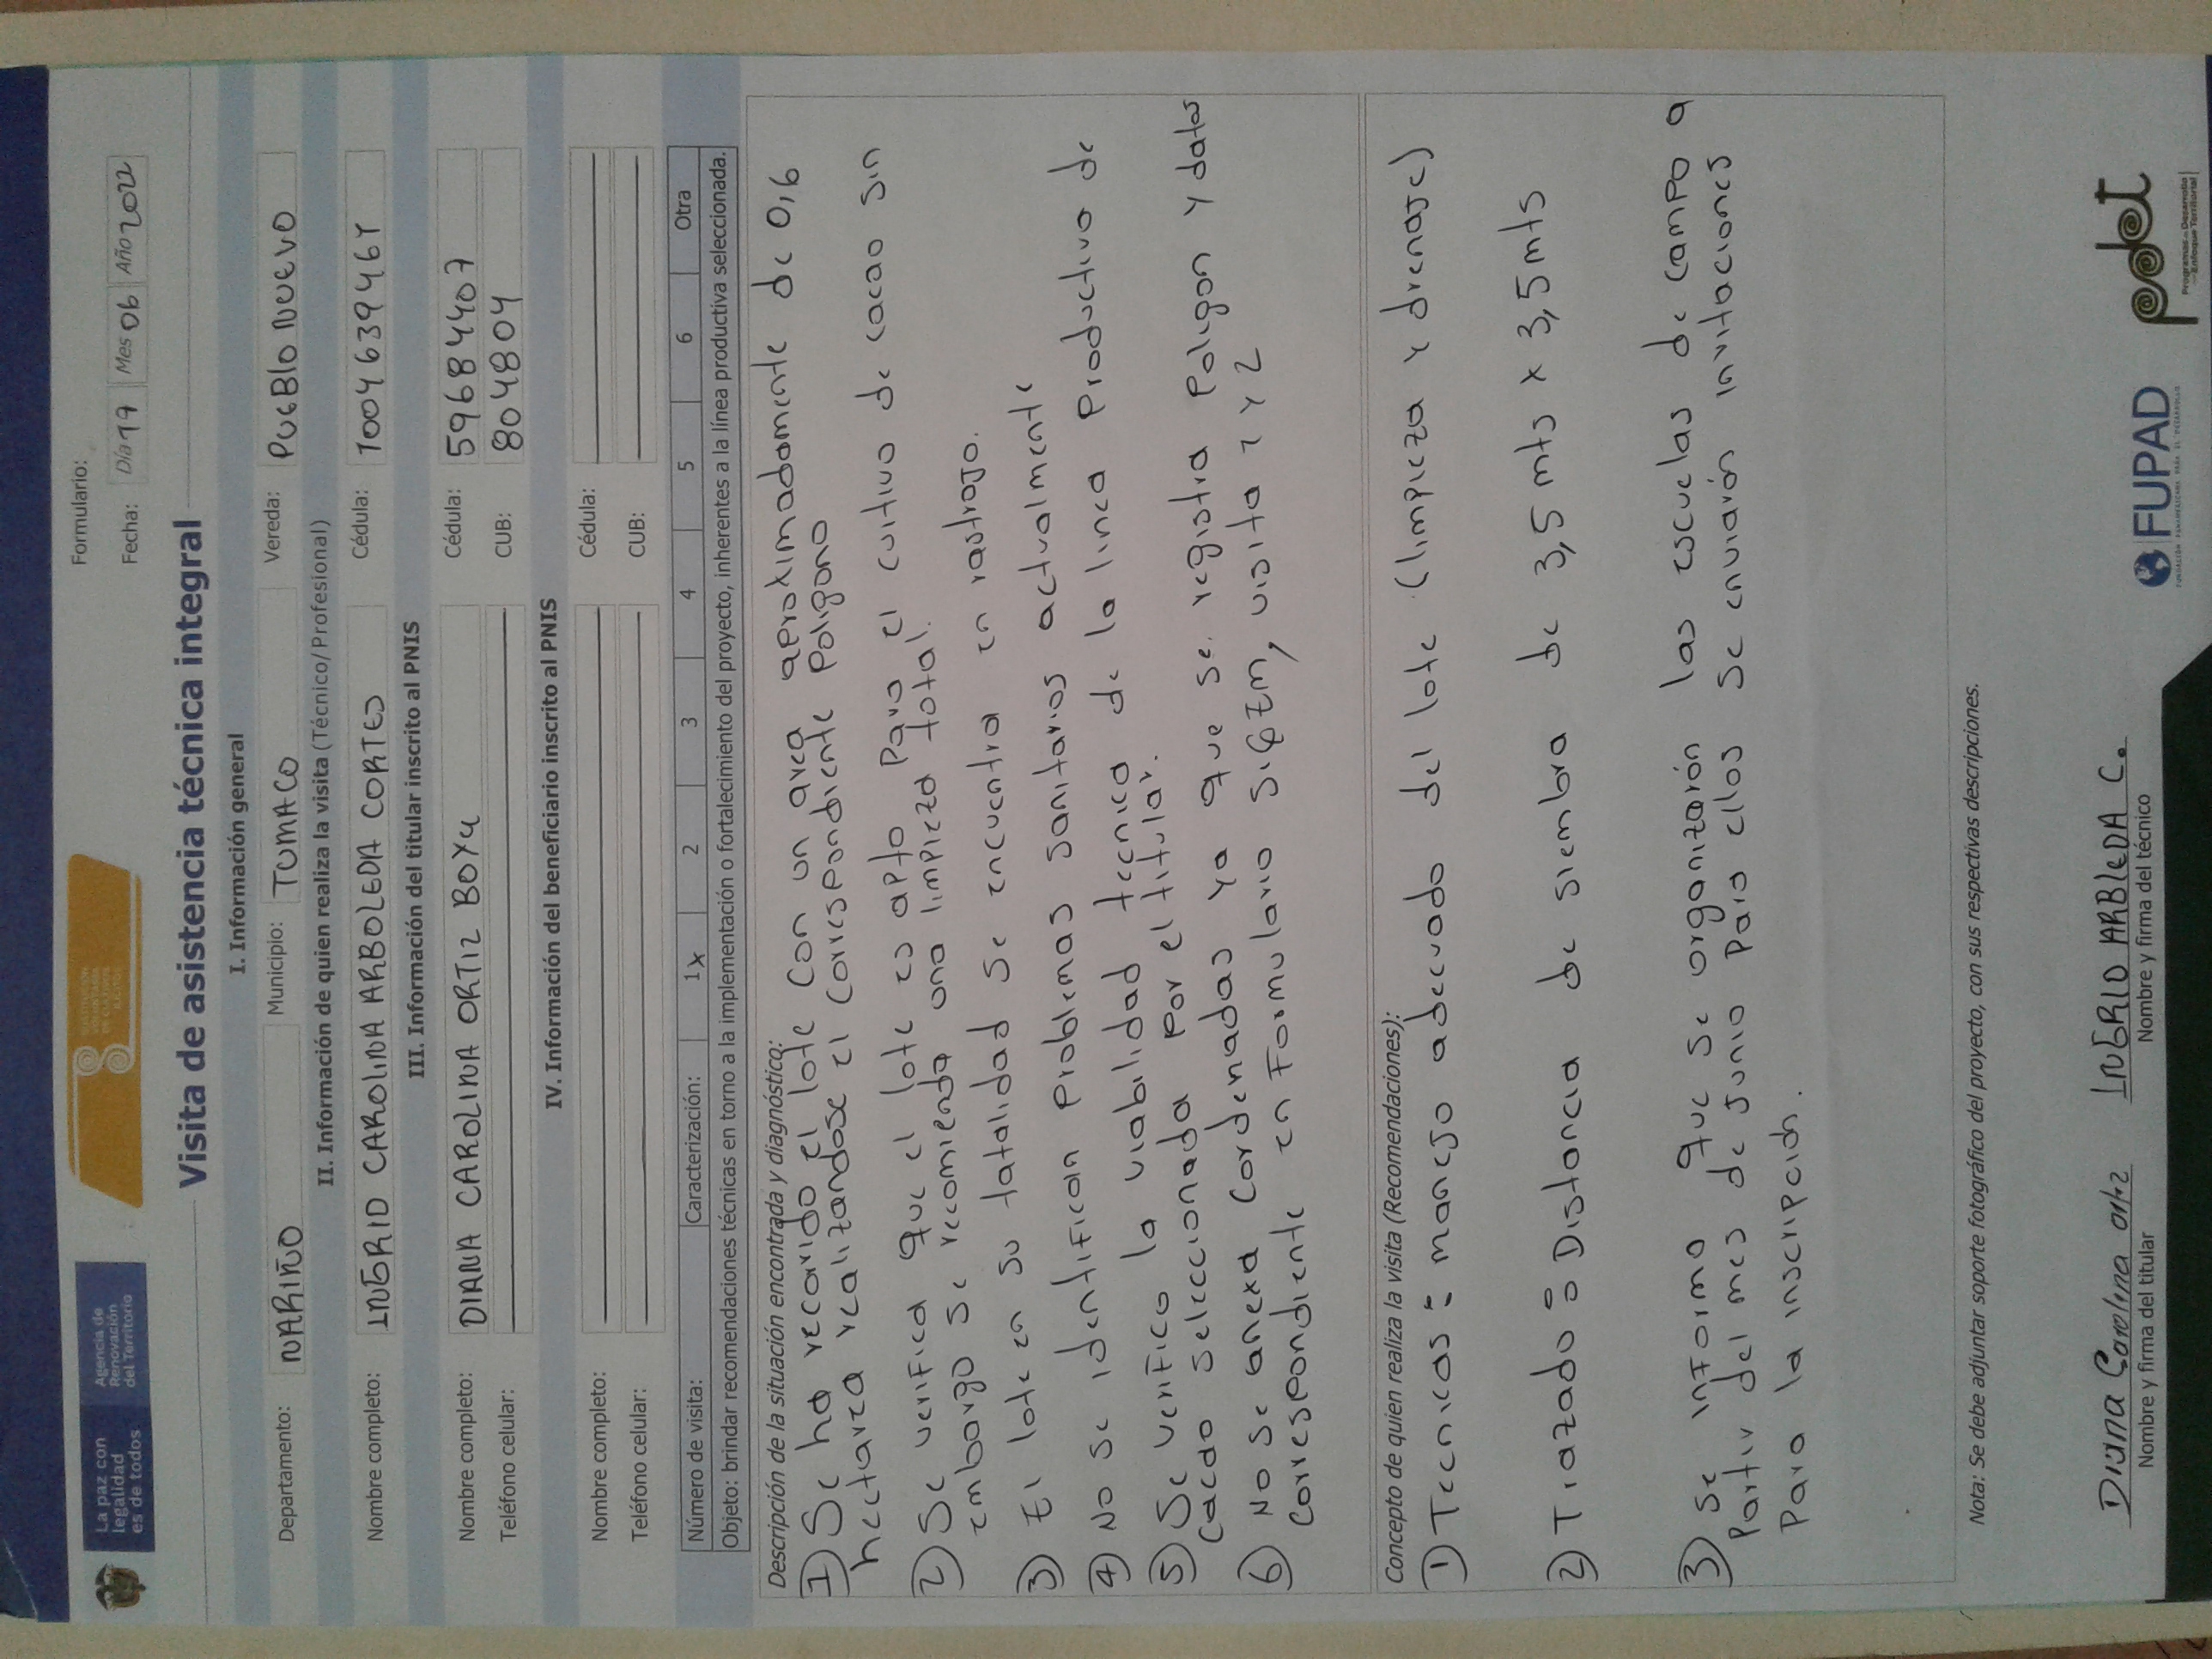 La paz con
legalidad
es de todos
Agencia de
Renovación
del Territorio
Formulario:
Fecha: Día 17 Mes 06 Año 2022
Visita de asistencia técnica integral
I. Información general
Departamento: NARIÑO Municipio: TUMACO Vereda: PUEBLO NUEVO
II. Información de quien realiza la visita (Técnico/Profesional)
Nombre completo: INGRID CAROLINA ARBOLEDA CORTES Cédula:
III. Información del titular inscrito al PNIS
Nombre completo: DIANA CAROLINA ORTIZ BOYA Cédula: 59684407
Teléfono celular: CUB: 804804
IV. Información del beneficiario inscrito al PNIS
Nombre completo: Cédula:
Teléfono celular: CUB:
Número de visita: Caracterización: 1 x 2 3 4 5 6 Otra
Objeto: brindar recomendaciones técnicas en torno a la implementación o fortalecimiento del proyecto, inherentes a la línea productiva seleccionada.
Descripción de la situación encontrada y diagnóstico:
1) Se ha recorrido el lote con un area aproximadamente de 0,6
hectarea realizandose el correspondiente Poligono
2) Se verifica que el lote es apto para el cultivo de cacao sin
embargo se recomienda una limpieza total.
3) El lote en su totalidad se encuentra en rastrojo.
4) No se identifican problemas sanitarios actualmente
5) Se verifico la viabilidad tecnica de la linea Productiva de
cacao seleccionada por el titular.
6) No se anexa cordenadas ya que se registra Poligon y datos
correspondiente en Formulario SIGEM, visita 1 y 2
Concepto de quien realiza la visita (Recomendaciones):
1) Tecnicas : manejo adecuado del lote (limpieza y drenaje)
2) Trazado : Distancia de siembra de 3,5 mts x 3,5 mts
3) se informa que se organizarón las escuelas de campo a
Partir del mes de junio Para ellos se enviarón invitaciones
Para la inscripción.
Nota: Se debe adjuntar soporte fotográfico del proyecto, con sus respectivas descripciones.
Diana Carolina Ortiz
Nombre y firma del titular
INGRID ARBLEDA C.
Nombre y firma del técnico
FUPAD
pdet
Programas de Desarrollo
con Enfoque Territorial